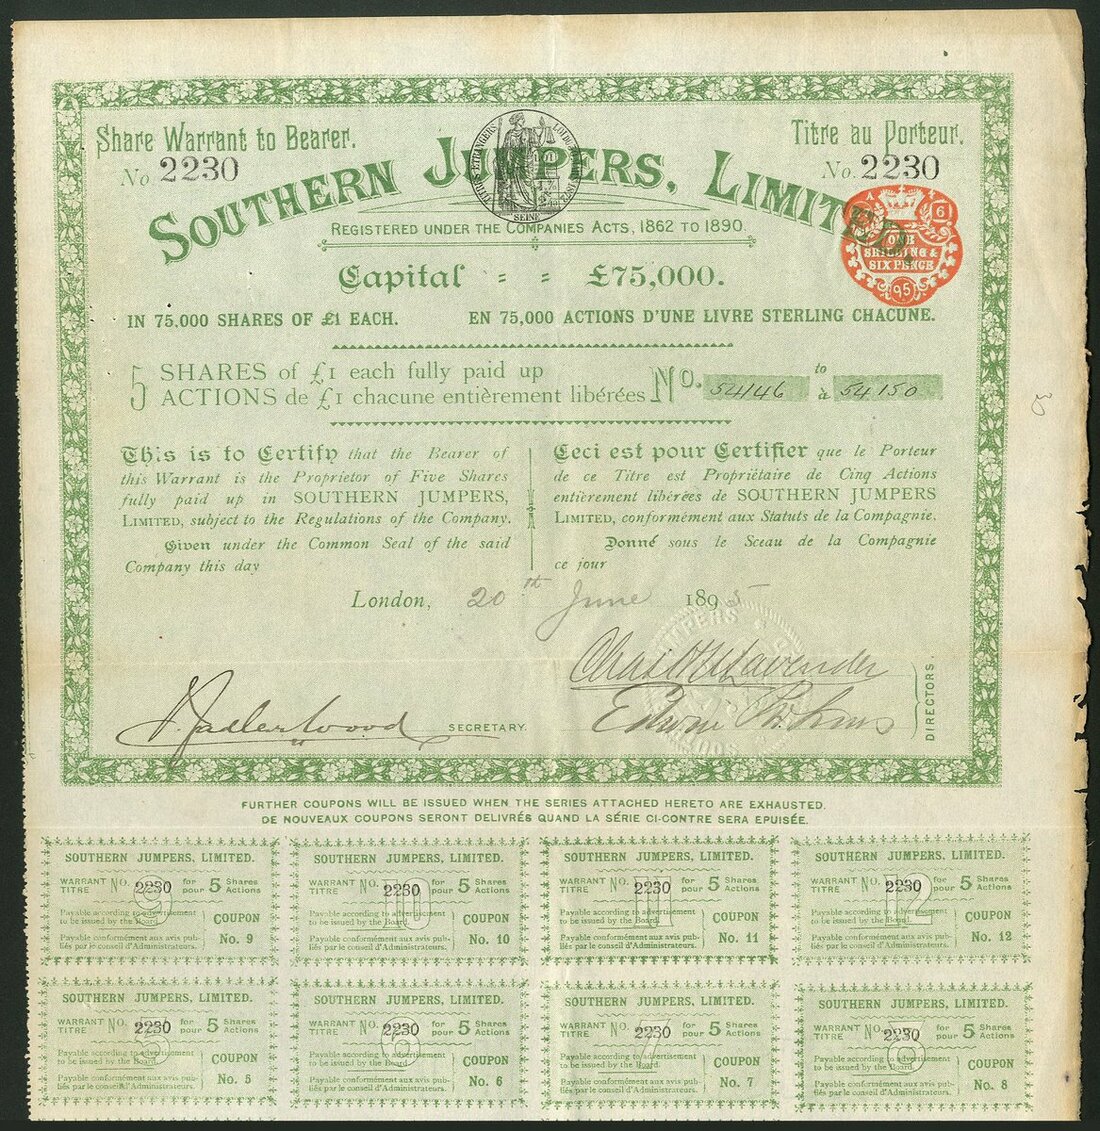 Share Warrant to Bearer.
No. 2230
Titre au Porteur.
No. 2230
SOUTHERN JUMPERS, LIMITED.
TITRES ETRANGERS
SEINE
ONE
SHILLING &
SIX PENCE
A
6
95
REGISTERED UNDER THE COMPANIES ACTS, 1862 TO 1890.
Capital = = £75,000.
IN 75.000 SHARES OF £1 EACH. EN 75,000 ACTIONS D'UNE LIVRE STERLING CHACUNE.
5 SHARES of £1 each fully paid up
ACTIONS de £1 chacune entièrement libérées
No. 54146 to à 54150
This is to Certify that the Bearer of
this Warrant is the Proprietor of Five Shares
fully paid up in SOUTHERN JUMPERS,
LIMITED, subject to the Regulations of the Company.
Given under the Common Seal of the said
Company this day
Ceci est pour Certifier que le Porteur
de ce Titre est Propriétaire de Cinq Actions
entièrement libérées de SOUTHERN JUMPERS
LIMITED, conformément aux Statuts de la Compagnie.
Donné sous le Sceau de la Compagnie
ce jour
London, 20th June 1895
SECRETARY.
DIRECTORS.
FURTHER COUPONS WILL BE ISSUED WHEN THE SERIES ATTACHED HERETO ARE EXHAUSTED.
DE NOUVEAUX COUPONS SERONT DÉLIVRÉS QUAND LA SÉRIE CI-CONTRE SERA EPUISÉE.
SOUTHERN JUMPERS, LIMITED.
WARRANT TITRE No. 2230 for pour 5 Shares Actions
9
Payable according to advertisement
to be issued by the Board.
Payable conformément aux avis pub-
liés par le conseil d'Administrateurs.
COUPON
No. 9
SOUTHERN JUMPERS, LIMITED.
WARRANT TITRE No. 2230 for pour 5 Shares Actions
10
Payable according to advertisement
to be issued by the Board.
Payable conformément aux avis pub-
liés par le conseil d'Administrateurs.
COUPON
No. 10
SOUTHERN JUMPERS, LIMITED.
WARRANT TITRE No. 2230 for pour 5 Shares Actions
11
Payable according to advertisement
to be issued by the Board.
Payable conformément aux avis pub-
liés par le conseil d'Administrateurs.
COUPON
No. 11
SOUTHERN JUMPERS, LIMITED.
WARRANT TITRE No. 2230 for pour 5 Shares Actions
12
Payable according to advertisement
to be issued by the Board.
Payable conformément aux avis pub-
liés par le conseil d'Administrateurs.
COUPON
No. 12
SOUTHERN JUMPERS, LIMITED.
WARRANT TITRE No. 2230 for pour 5 Shares Actions
5
Payable according to advertisement
to be issued by the Board.
Payable conformément aux avis pub-
liés par le conseil d'Administrateurs.
COUPON
No. 5
SOUTHERN JUMPERS, LIMITED.
WARRANT TITRE No. 2230 for pour 5 Shares Actions
6
Payable according to advertisement
to be issued by the Board.
Payable conformément aux avis pub-
liés par le conseil d'Administrateurs.
COUPON
No. 6
SOUTHERN JUMPERS, LIMITED.
WARRANT TITRE No. 2230 for pour 5 Shares Actions
7
Payable according to advertisement
to be issued by the Board.
Payable conformément aux avis pub-
liés par le conseil d'Administrateurs.
COUPON
No. 7
SOUTHERN JUMPERS, LIMITED.
WARRANT TITRE No. 2230 for pour 5 Shares Actions
8
Payable according to advertisement
to be issued by the Board.
Payable conformément aux avis pub-
liés par le conseil d'Administrateurs.
COUPON
No. 8